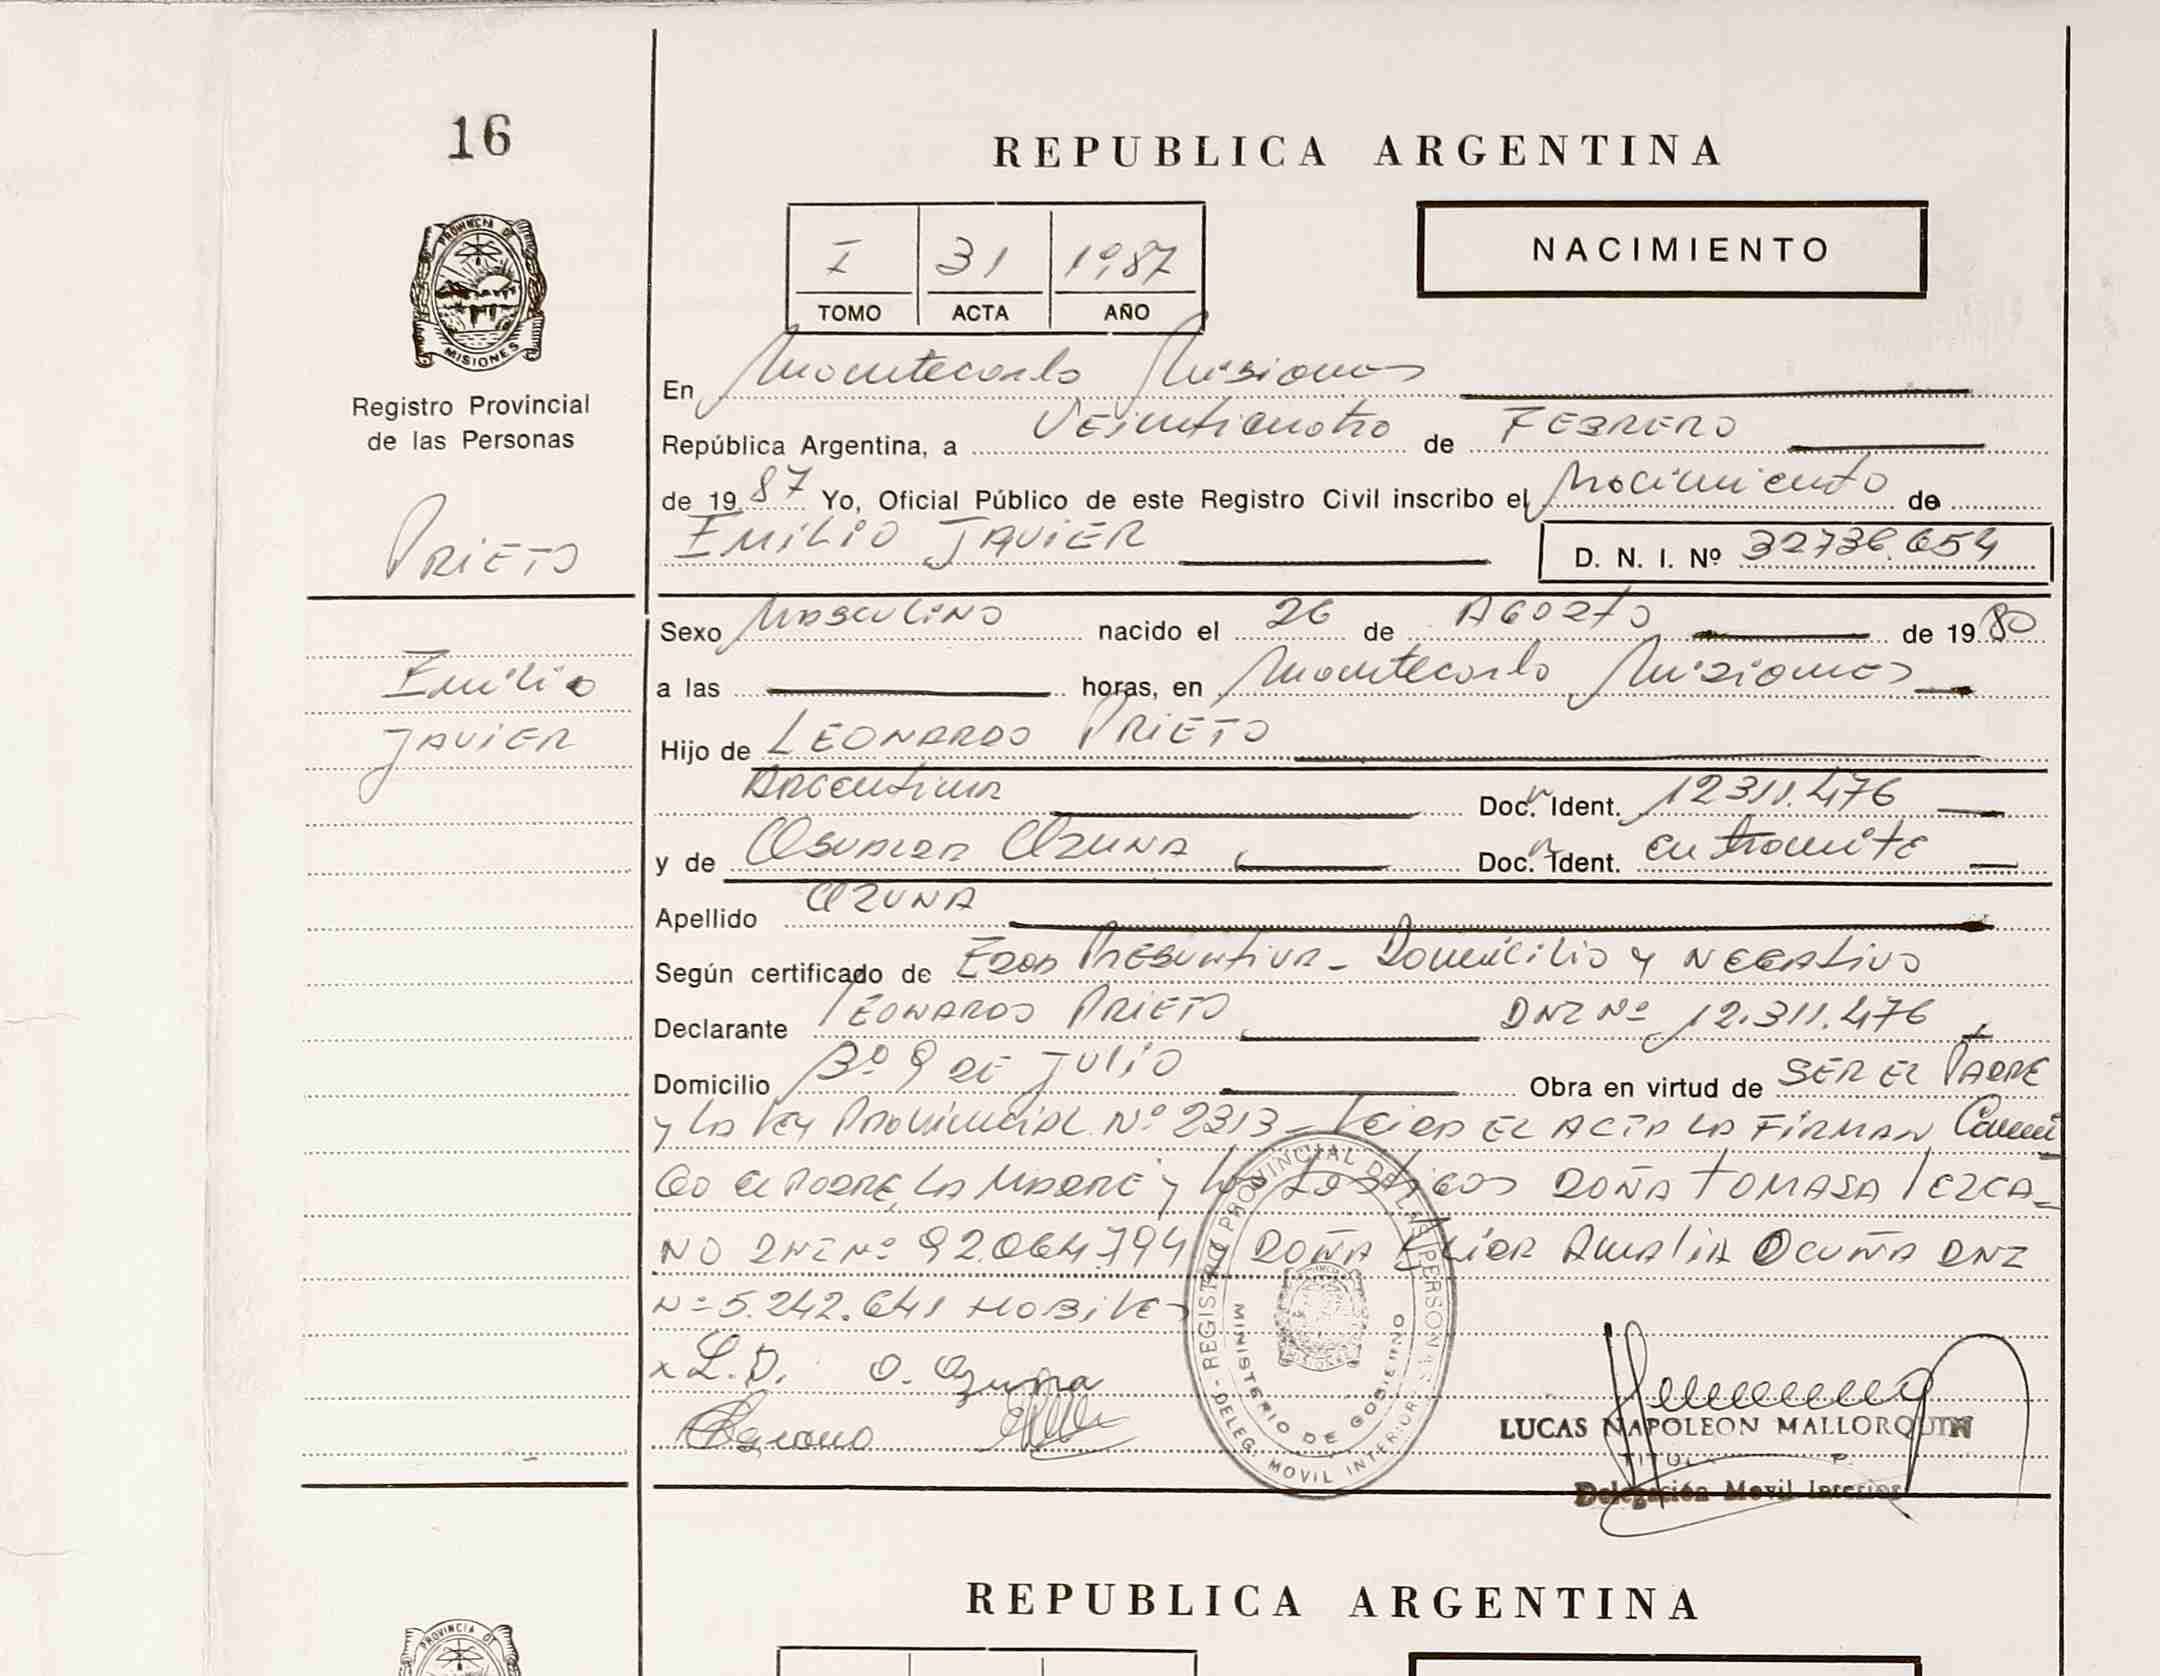 16
REPUBLICA ARGENTINA
PROVINCIA DE
MISIONES
Registro Provincial
de las Personas
I 31 1987
TOMO ACTA AÑO
NACIMIENTO
PRIETO
Emilio
JAVIER
En Montecarlo Misiones
República Argentina, a Veinticuatro de FEBRERO
de 1987 Yo, Oficial Público de este Registro Civil inscribo el Nacimiento de
EMILIO JAVIER D. N. I. Nº 32736.654
Sexo Masculino nacido el 26 de AGOSTO de 1980
a las horas, en Montecarlo Misiones
Hijo de LEONARDO PRIETO
Argentina Doc. Ident. 12311.476
y de Osvalda Ozuna Doc. Ident. en tramite
Apellido OZUNA
Según certificado de Edad Presuntiva - Domicilio y Negativo
Declarante LEONARDO PRIETO DNI Nº 12.311.476
Domicilio Bº 9 DE JULIO Obra en virtud de SER EL PADRE
y La Ley Provincial Nº 2313 - Leida EL ACTA LA FIRMAN Conmi
go el PADRE, La MADRE y los testigos DOÑA TOMASA LEZCA-
NO DNI Nº 92.064.794 y DOÑA Amalia DNI
Nº 5.242.641 HABILES
x L.D. O. Ozuna
REGISTRO PROVINCIAL DE LAS PERSONAS
MINISTERIO DE GOBIERNO
DELEG. MOVIL INTERIOR
LUCAS NAPOLEON MALLORQUIN
Delegación Movil Interior
REPUBLICA ARGENTINA
PROVINCIA DE